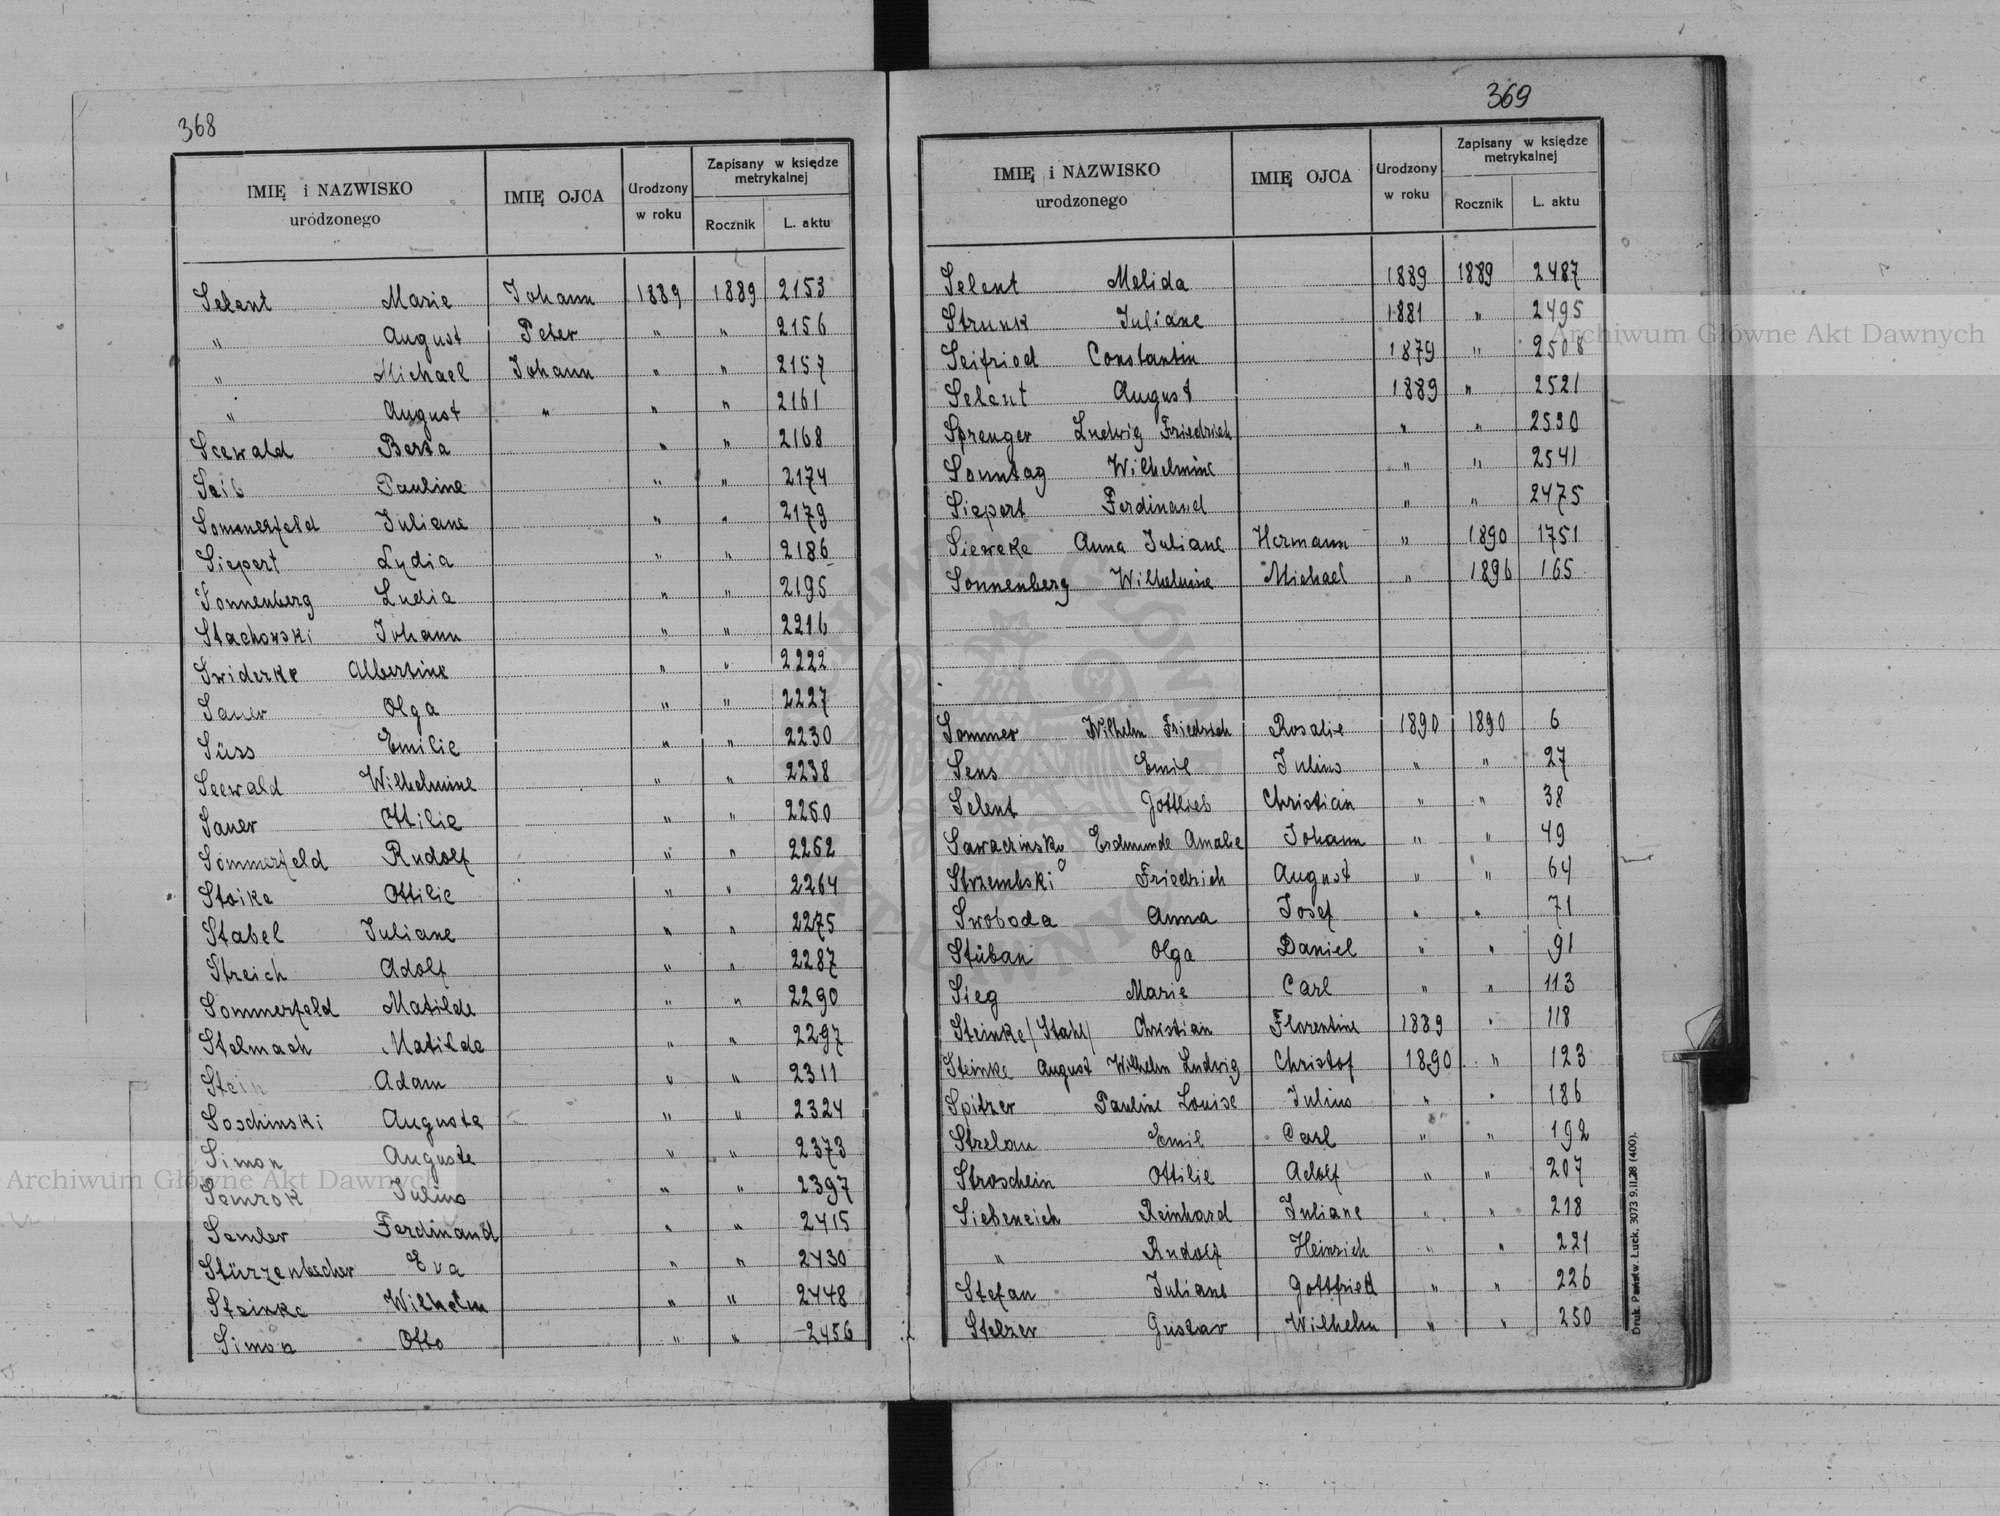 368
IMIĘ i NAZWISKO urodzonego IMIĘ OJCA Urodzony w roku Zapisany w księdze metrykalnej Rocznik L. aktu
Selent Marie Johann 1889 1889 2153
" August Peter " " 2156
" Michael Johann " " 2157
" August " " " 2161
Seewald Berta " " 2168
Seib Pauline " " 2174
Sommerfeld Juliane " " 2179
Siepert Lydia " " 2186
Sonnenberg Lydia " " 2195
Stachowski Johann " " 2216
Swiderke Albertine " " 2222
Sauer Olga " " 2227
Süss Emilie " " 2230
Seewald Wilhelmine " " 2238
Sauer Ottilie " " 2250
Sommerfeld Rudolf " " 2262
Steike Ottilie " " 2264
Stabel Juliane " " 2275
Streich Adolf " " 2287
Sommerfeld Matilde " " 2290
Stelmach Matilde " " 2297
Stein Adam " " 2311
Soschinski Auguste " " 2324
Simon Auguste " " 2373
Semrok Julius " " 2397
Semler Ferdinand " " 2415
Stürzenbecher Eva " " 2430
Steinke Wilhelm " " 2448
Simon Otto " " 2456
369
IMIĘ i NAZWISKO urodzonego IMIĘ OJCA Urodzony w roku Zapisany w księdze metrykalnej Rocznik L. aktu
Selent Melida 1889 1889 2487
Strunk Juliane 1881 " 2495
Seifried Constantin 1879 " 2508
Selent August 1889 " 2521
Sprenger Ludwig Friedrich " " 2530
Sonntag Wilhelmine " " 2541
Siepert Ferdinand " " 2475
Sieweke Anna Juliane Hermann " 1890 1751
Sonnenberg Wilhelmine Michael " 1896 165
Sommer Wilhelm Friedrich Rosalie 1890 1890 6
Sens Emil Julius " " 27
Selent Gottlieb Christian " " 38
Erdmunde Amalie Johann " " 49
Strzembski Friedrich August " " 64
Swoboda Anna Josef " " 71
Stüban Olga Daniel " " 91
Sieg Marie Carl " " 113
Steinke /Stahl/ Christian Florentine 1889 " 118
Steinke August Wilhelm Ludwig Christof 1890 " 123
Spitzer Pauline Louise Julius " " 186
Strelau Emil Carl " " 192
Stroschein Ottilie Adolf " " 207
Siebeneich Reinhard Juliane " " 218
" Rudolf Heinrich " " 221
Stefan Juliane Gottfried " " 226
Stelzer Gustav Wilhelm " " 250
Druk. Państw. Łuck. 3073 9.II.28 (400).
Archiwum Główne Akt Dawnych
Archiwum Główne Akt Dawnych
ARCHIWUM GŁÓWNE AKT DAWNYCH